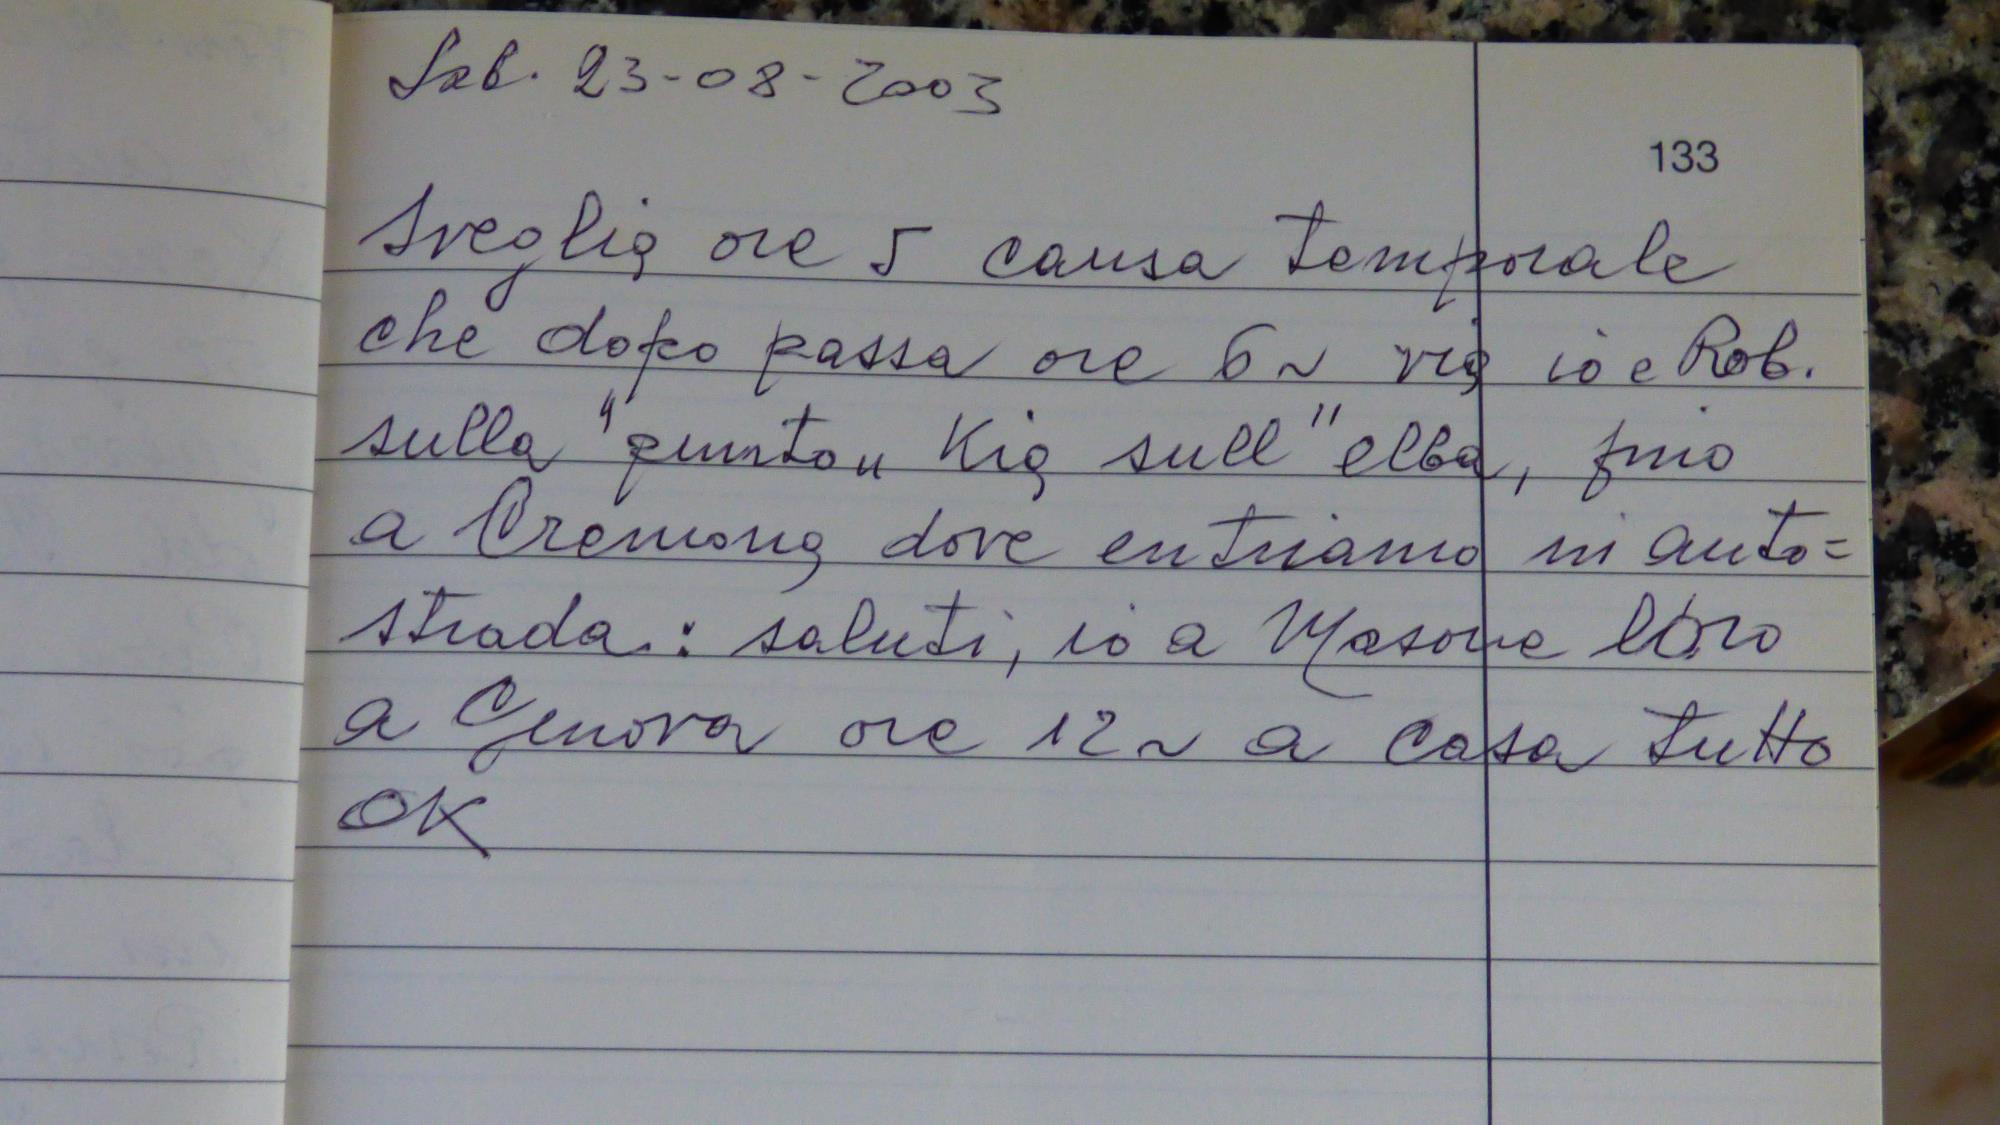 Sab. 23-08-2003
133
Sveglia ore 5 causa temporale
che dopo passa ore 6~ via io e Rob.
sulla "punto" Kia sull "elba, fino
a Cremona dove entriamo in auto=
strada: saluti, io a Masone loro
a Genova ore 12~ a casa tutto
OK